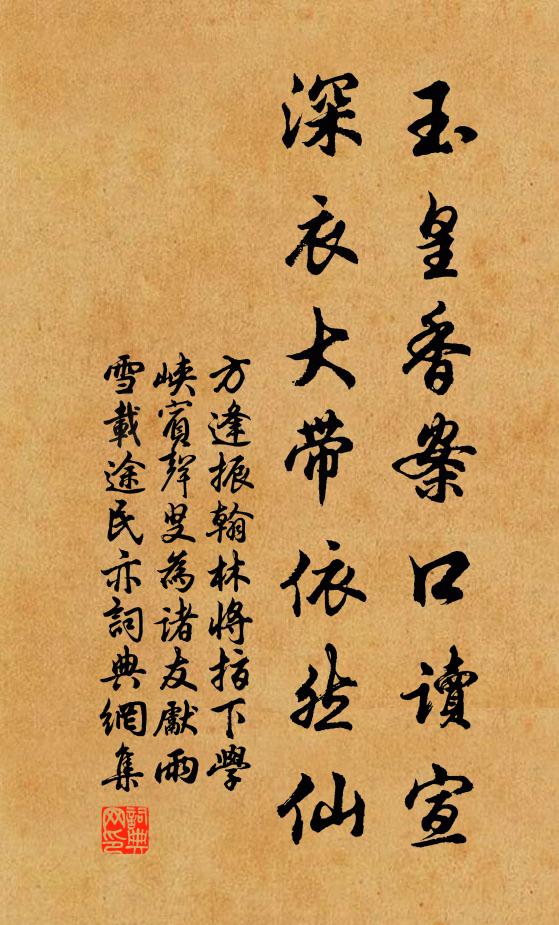 玉皇香案口讀宣
深衣大帶依然仙
方逢振翰林將指下學
峽賓聲叟為諸友獻雨
雪載途民亦詞典網集
詞典网印